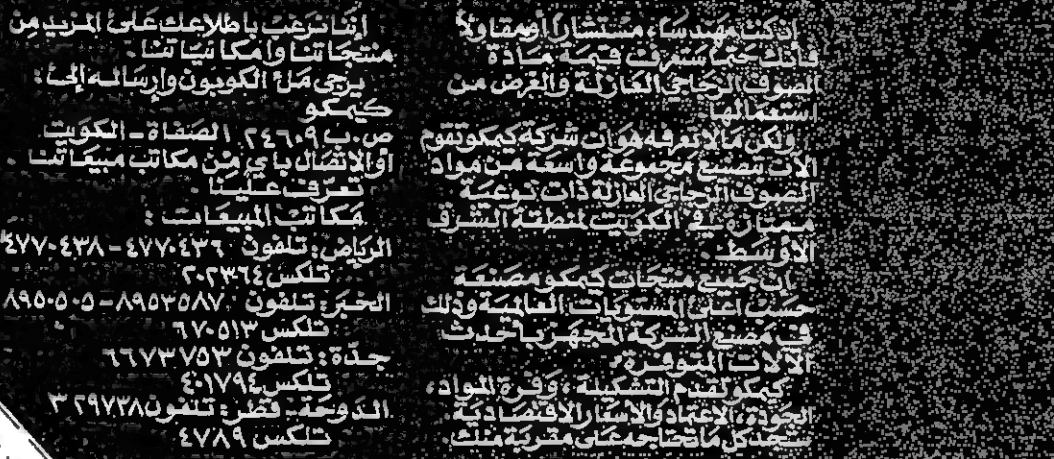 إن كنت مهندسًا، مستشارًا أو مقاولًا
فانك حتما ستعرف قيمة مادة
الصوف الزجاجي العازلة والغرض من
استعمالها
ولكن مالاتعرفه هو ان شركة كيمكو تقوم
الآن تصنيع مجموعة واسعة من مواد
الصوف الزجاجي العازلة ذات نوعية
ممتازة في الكويت لمنطقة الشرق
الأوسط.
ان جميع منتجات كيمكو مصنعة
حسب اعلى المستويات العالمية وذلك
في مصنع الشركة المجهز بأحدث
الآلات المتوفرة.
كيمكو تقدم التشكيلة، وفرة المواد،
الجودة، الاعتماد والاسعار الاقتصادية.
ستجد كل ما تحتاجه على مقربة منك.
إننا نرغب باطلاعك على المزيد من
منتجاتنا وامكانياتنا.
يرجى ملئ الكوبون وإرساله إلى:
كيمكو
ص.ب ٢٤٦٠٩ الصفاة - الكويت.
اوالاتصال باي من مكاتب مبيعاتنا.
تعرف علينا.
مكاتب المبيعات:
الرياض: تلفون ٤٧٧٠٤٣٦-٤٧٧٠٤٣٨
تلكس ٢٠٢٣٦٤
الخبر: تلفون ٨٩٥٣٥٨٧-٨٩٥٠٥٠٥
تلكس ٦٧٠٥١٣
جدة: تلفون ٦٦٧٣٧٥٣
تلكس ٤٠١٧٩٤
الدوحة - قطر: تلفون ٣٢٩٧٣٨
تلكس ٤٧٨٩